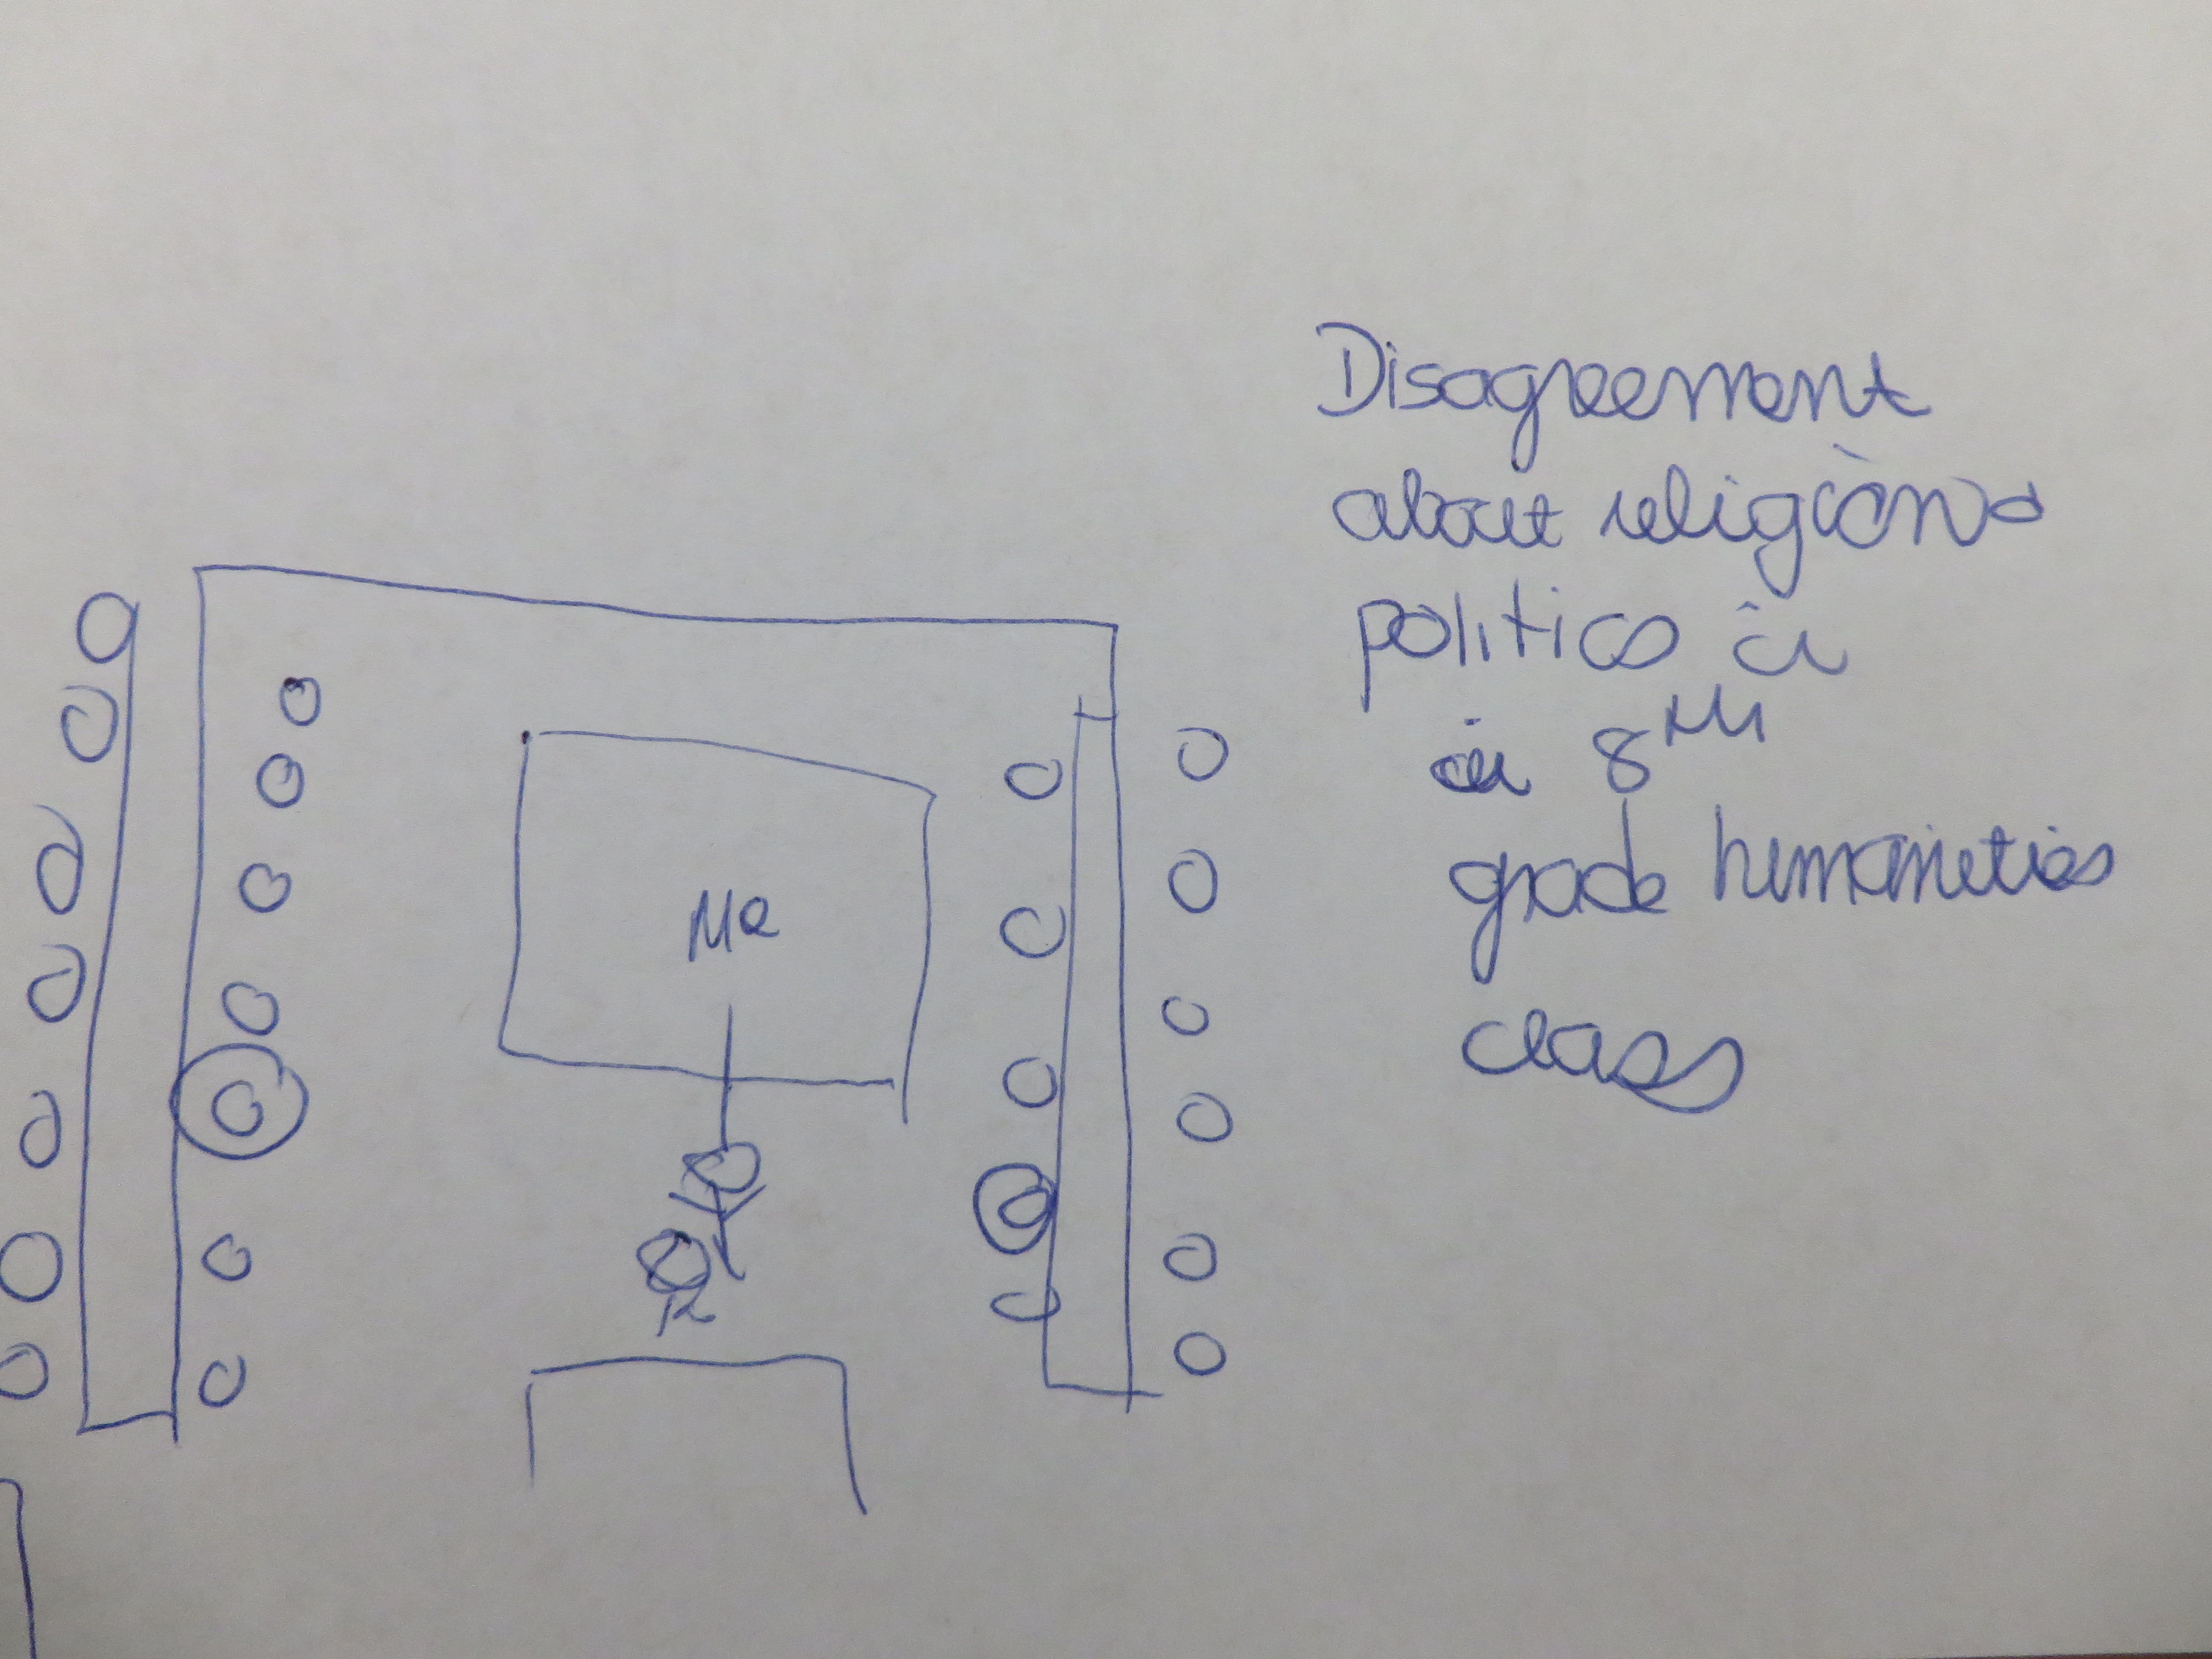 Disagreement
about religion &
politics in
in 8th
grade humanities
class
Me